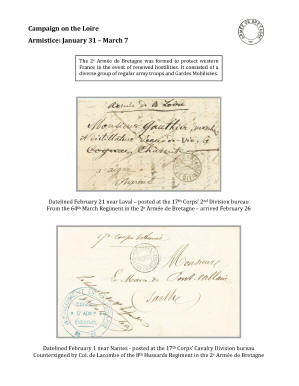 Campaign on the Loire
Armistice: January 31 – March 7
ARMÉE DE BRETAGNE
The 2e Armée de Bretagne was formed to protect western
France in the event of renewed hostilities. It consisted of a
diverse group of regular army troops and Gardes Mobilisées.
Armée de la Loire
Monsieur Gauthier
et distillateur d'eau-de-vie, à
Cognac, Charente
Datelined February 21 near Laval – posted at the 17th Corps' 2nd Division bureau
From the 64th March Regiment in the 2e Armée de Bretagne – arrived February 26
17e Corps d'Armée
Monsieur
Le Maire de Pont-vallain
Sarthe
Datelined February 1 near Nantes - posted at the 17th Corps' Cavalry Division bureau
Countersigned by Col. de Lacombe of the 8th Hussards Regiment in the 2e Armée de Bretagne